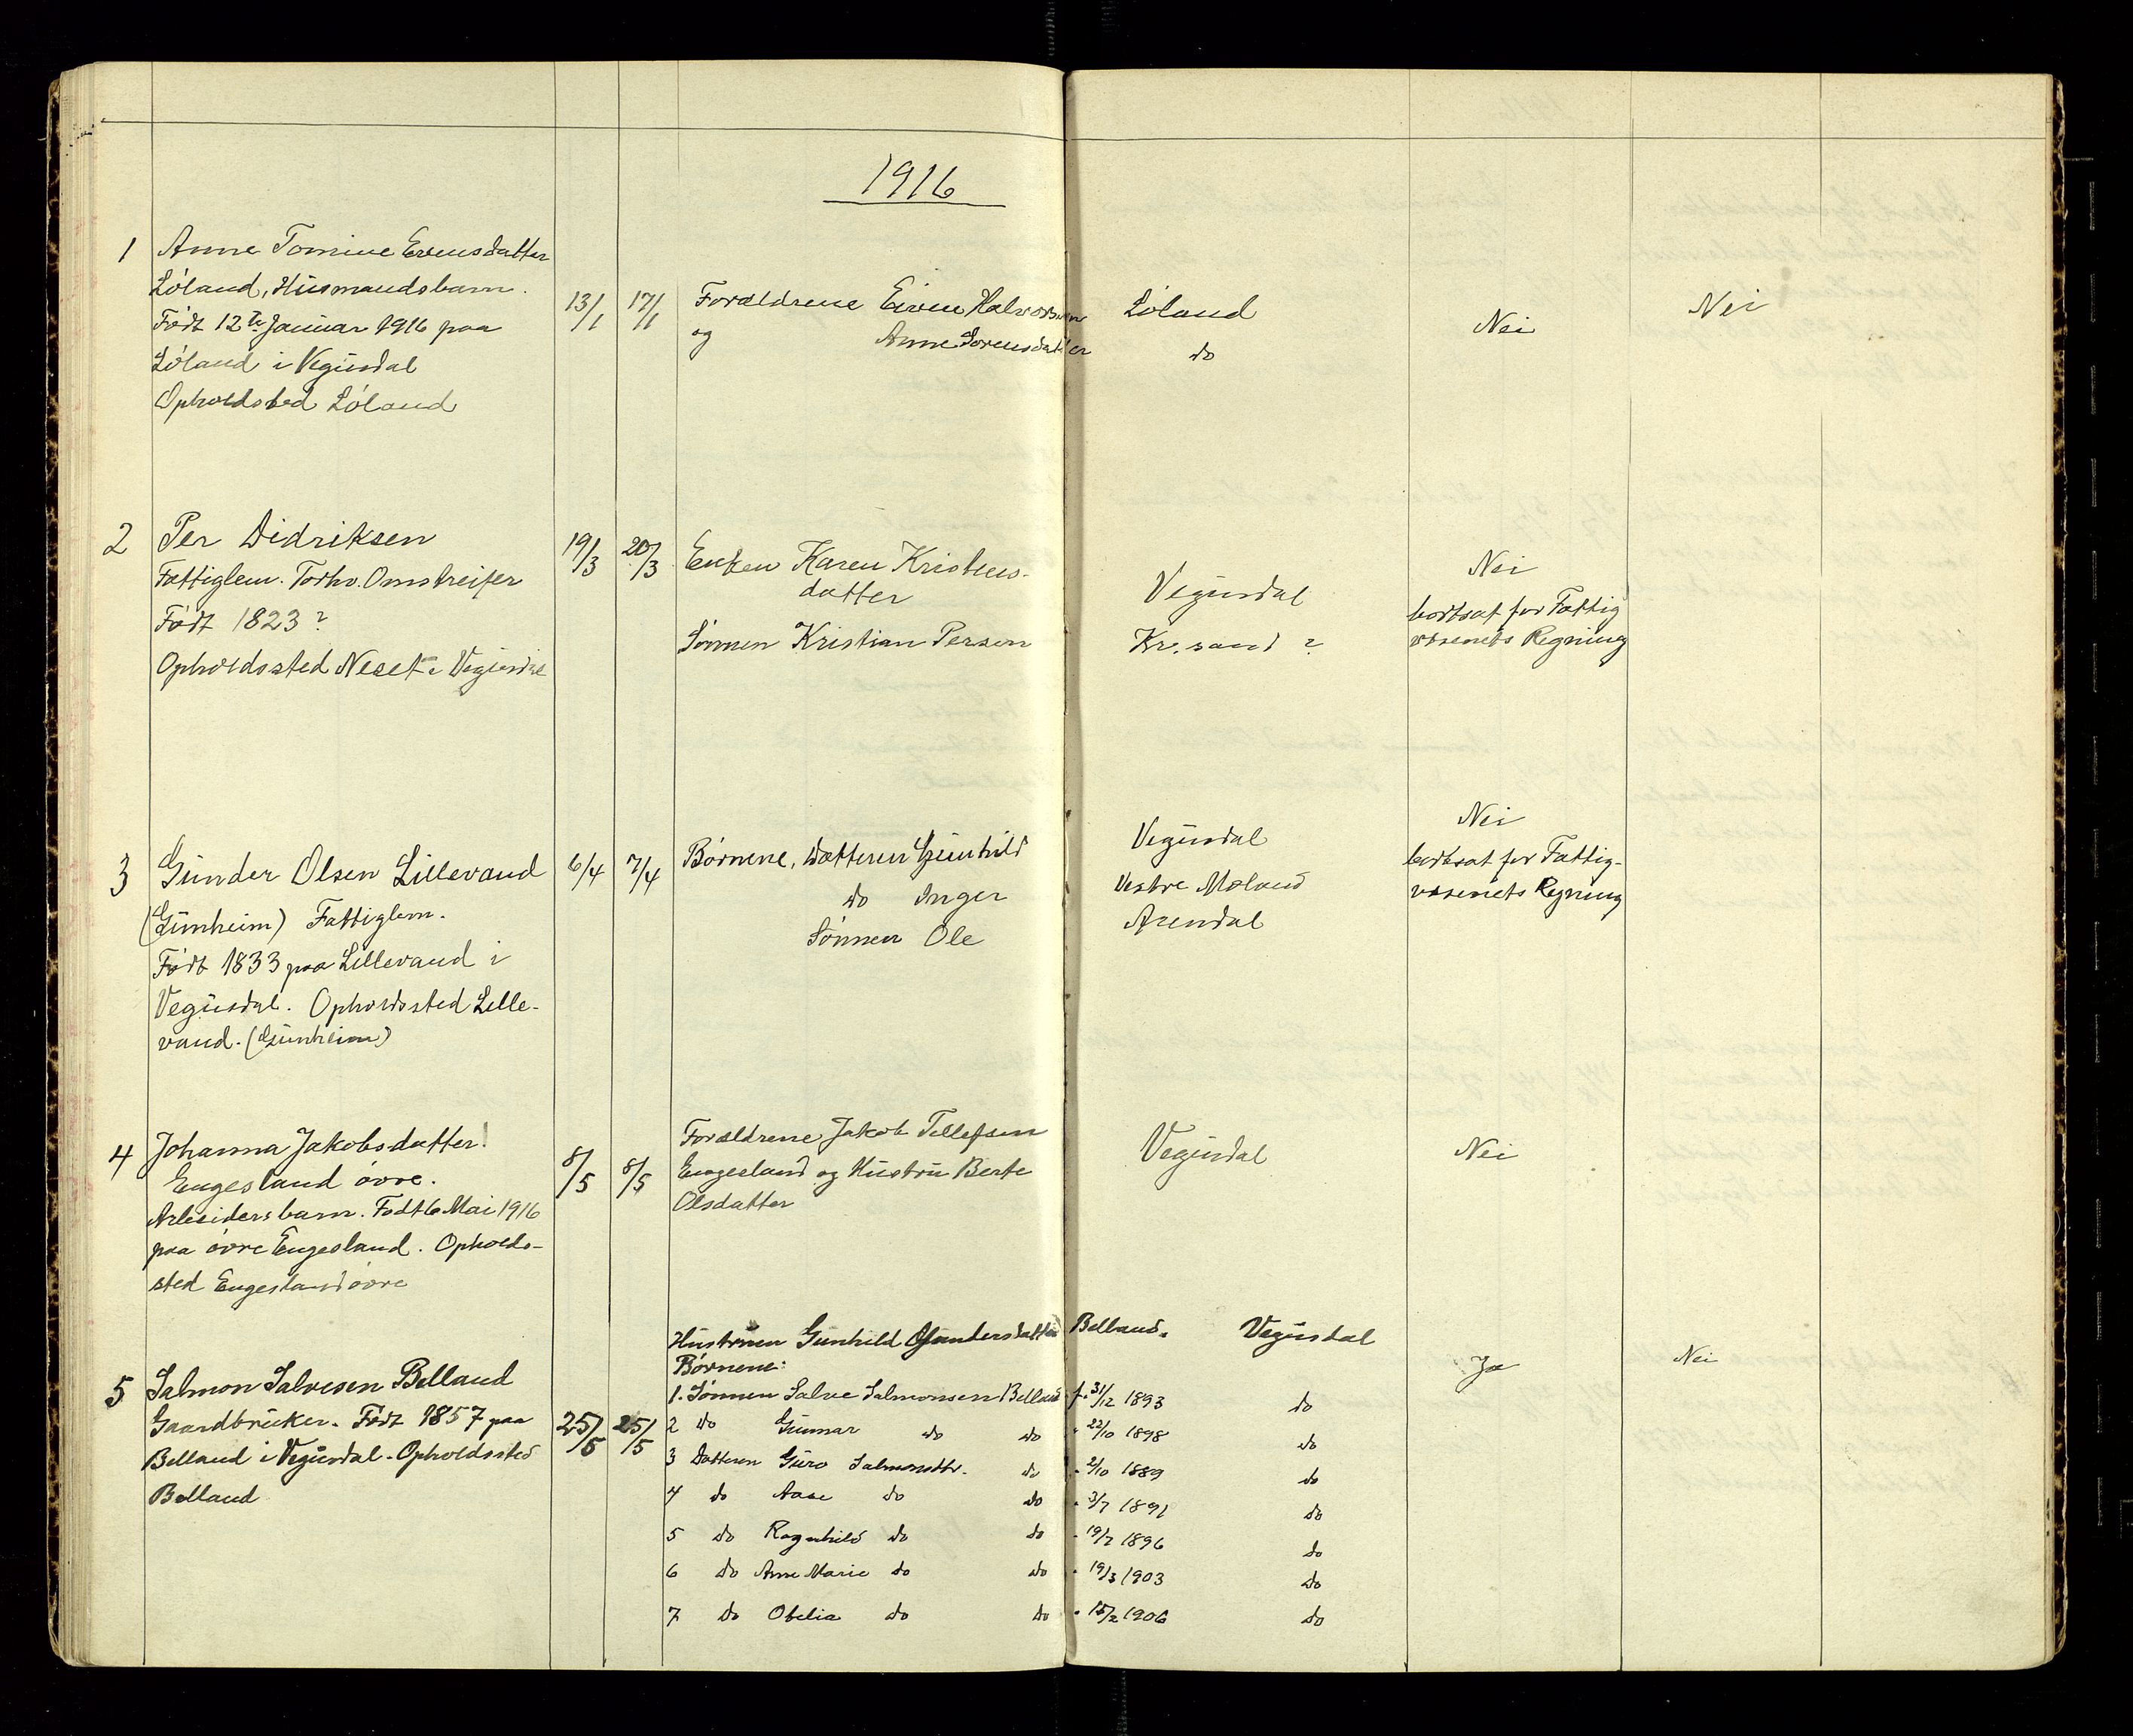 1916
1
Anne Tomine Evensdatter
Lóland, Husmandsbarn.
Født 12te Januar 1916 paa
Lóland i Vegusdal
Opholdsted Lóland
13/1
17/1
Forældrene Even Halvorsen
og Anne Sorensdatter
Lóland
do
Nei
Nei
2
Per Didriksen
Fattiglem. Forhv. Omstreifer
Født 1823?
Opholdssted Neset i Vegusdal
19/3
20/3
Enken Karen Kristens-
datter
Sønnen Kristian Persen
Vegusdal
Kr. sand ?
Nei
bortsat for Fattig
væsenets Regning
3
Gunder Olsen Lillevand
(Gunheim) Fattiglem.
Født 1833 paa Lillevand i
Vegusdal. Opholdssted Lille-
vand. (Gunheim)
6/4
7/4
Børnene, Datteren Gunhild
do Inger
Sønnen Ole
Vegusdal
Vestre Moland
Arendal
Nei
bortsat for Fattig-
væsenets Regning
4
Johanna Jakobsdatter
Engesland óvre.
Arbeidersbarn. Født 6 Mai 1916
paa óvre Engesland. Opholds-
sted Engesland óvre
8/5
8/5
Forældrene Jakob Tellefsen
Engesland og Hustru Berte
Olsdatter
Vegusdal
Nei
5
Salmon Salvesen Belland
Gaardbruker. Født 1857 paa
Belland i Vegusdal. Opholdssted
Belland
25/5
25/5
Hustruen Gunhild Gundersdatter Belland. Vegusdal
Børnene:
1. Sønnen Salve Salmonsen Belland f. 31/12 1893 do
2 do Gunnar do do " 22/10 1898 do
3 Datteren Guro Salmonsdtr. do " 2/10 1889 do
4 do Aase do do " 3/7 1891 do
5 do Ragnhild do do " 19/7 1896 do
6 do Anne Marie do do " 19/3 1903 do
7 do Otelia do do " 15/2 1906 do
Ja
Nei